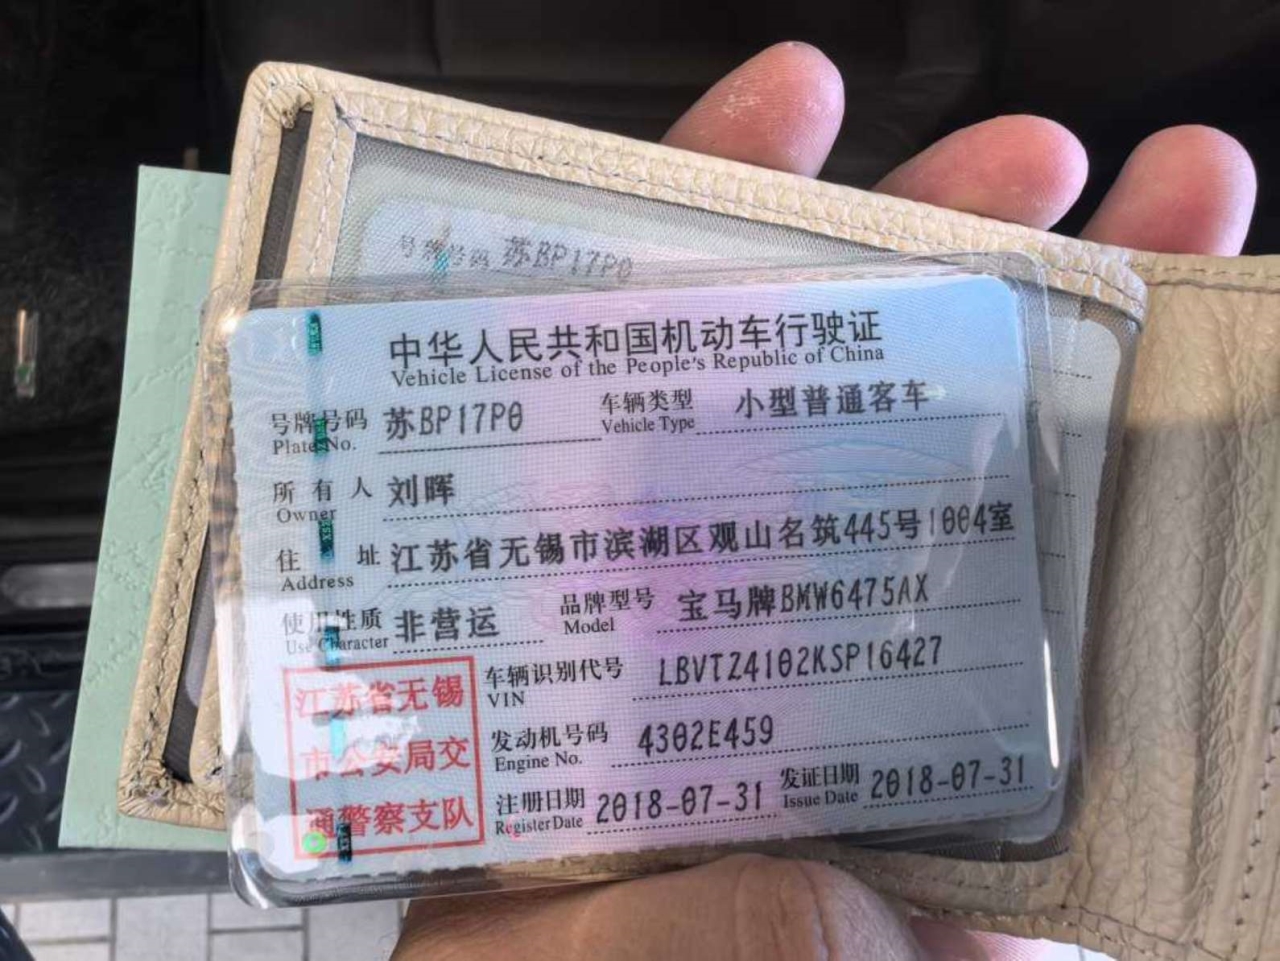 号牌号码 苏BP17P0
中华人民共和国机动车行驶证
Vehicle License of the People's Republic of China
号牌号码 苏BP17P0 车辆类型 小型普通客车
Plate No. Vehicle Type
所有人 刘晖
Owner
住址 江苏省无锡市滨湖区观山名筑445号1004室
Address
使用性质 非营运 品牌型号 宝马牌BMW6475AX
Use Character Model
江苏省无锡
市公安局交
通警察支队
车辆识别代号 LBVTZ4102KSP16427
VIN
发动机号码 4302E459
Engine No.
注册日期 2018-07-31 发证日期 2018-07-31
Register Date Issue Date